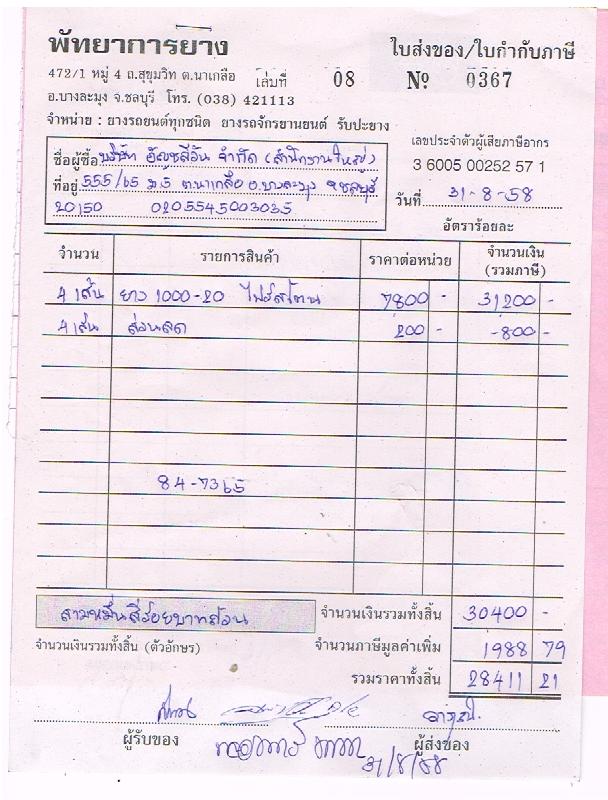 พัทยาการยาง
ใบส่งของ/ใบกำกับภาษี
472/1 หมู่ 4 ถ.สุขุมวิท ต.นาเกลือ เล่มที่ 08 Nº 0367
อ.บางละมุง จ.ชลบุรี โทร. (038) 421113
จำหน่าย : ยางรถยนต์ทุกชนิด ยางรถจักรยานยนต์ รับปะยาง
เลขประจำตัวผู้เสียภาษีอากร
3 6005 00252 57 1
ชื่อผู้ซื้อ บริษัท อัญชลีอัน จำกัด (สำนักงานใหญ่)
ที่อยู่ 555/65 ม.5 ต.นาเกลือ อ.บางละมุง จ.ชลบุรี
20150 0205545003035
วันที่ 31-8-58
อัตราร้อยละ
จำนวน รายการสินค้า ราคาต่อหน่วย จำนวนเงิน
(รวมภาษี)
4 เส้น ยาง 1000-20 ไฟร์สโตน 7800 - 31200 -
4 เส้น ส่วนลด 200 - -800 -
84-7365
สามหมื่นสี่ร้อยบาทถ้วน จำนวนเงินรวมทั้งสิ้น 30400 -
จำนวนเงินรวมทั้งสิ้น (ตัวอักษร) จำนวนภาษีมูลค่าเพิ่ม 1988 79
รวมราคาทั้งสิ้น 28411 21
ผู้รับของ ผู้ส่งของ
31/8/58